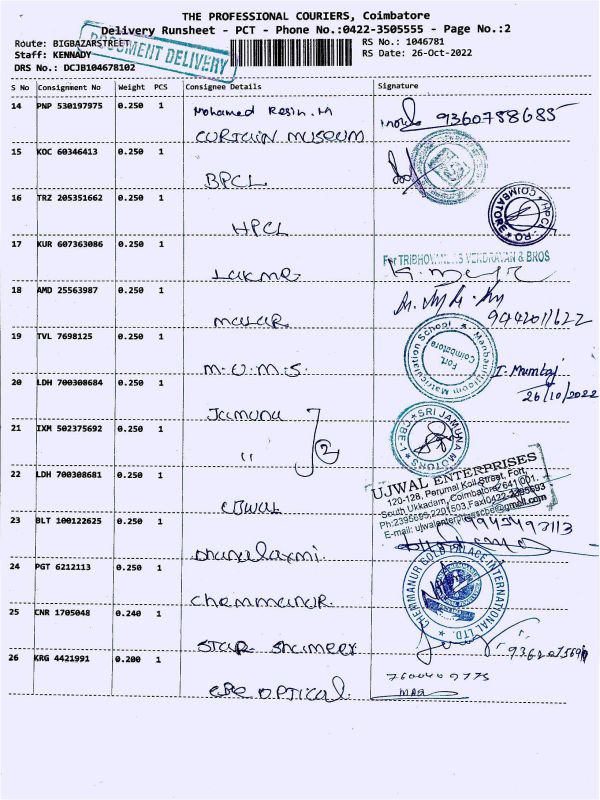 THE PROFESSIONAL COURIERS, Coimbatore
Delivery Runsheet - PCT - Phone No.:0422-3505555 - Page No.:2
Route: BIGBAZARSTREET
RS No.: 1046781
Staff: KENNADY
RS Date: 26-Oct-2022
DRS No.: DCJB104678102
DOCUMENT DELIVERY
S No Consignment No Weight PCS Consignee Details Signature
14 PNP 530197975 0.250 1 Mohamed Resin.M
CURTAIN MUSEUM
9360758685
15 KOC 60346413 0.250 1
BPCL
16 TRZ 205351662 0.250 1
HPCL
HPCL RO COIMBATORE
17 KUR 607363086 0.250 1
Lakme
For TRIBHOVANDAS VENDRAVAN & BROS
18 AMD 25563987 0.250 1
malar
9442011622
19 TVL 7698125 0.250 1
M.U.M.S.
Manbaul Matriculation School
Fort, Coimbatore
I. Mumtaj
26/10/2022
20 LDH 700308684 0.250 1
Jamuna
21 IXM 502375692 0.250 1
"
2
SRI JAMUNA MOTORS CBE-1
22 LDH 700308681 0.250 1
UJWAL
UJWAL ENTERPRISES
120-128, Perumal Koil Street, Fort,
South Ukkadam, Coimbatore - 641 001.
Ph:2395695,2201503,Fax:0422-2395693
E-mail: ujwalenterprisescbe@gmail.com
23 BLT 100122625 0.250 1
Dhanalaxmi.
24 PGT 6212113 0.250 1
Chemmanur.
CHEMMANUR GOLD PALACE INTERNATIONAL LTD.
25 CNR 1705048 0.240 1
STAR
26 KRG 4421991 0.200 1
OPTICAL.